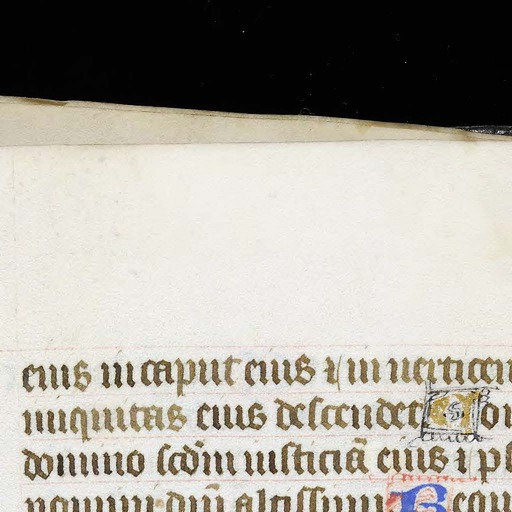 eius in caput eius ⁊ in uerticem
iniquitas eius descendet C on
domino scdm iusticiā eius ⁊ ps
nomini dnī altissimi